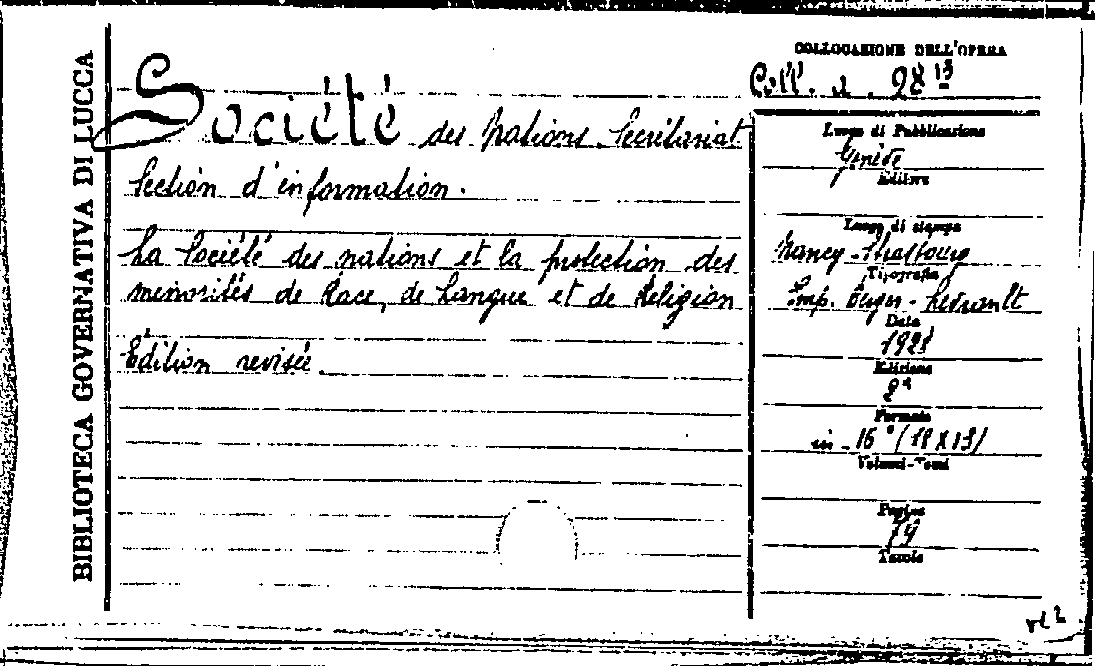 BIBLIOTECA GOVERNATIVA DI LUCCA
Société des Nations. Secrétariat
Section d'information.
La Société des nations et la protection des
minorités de Race, de Langue et de Religion
Édition revisée.
COLLOCAZIONE DELL'OPERA
Coll. 2. 28 13
Luogo di Pubblicazione
Genève
Editore
Luogo di stampa
Nancy-Strasbourg
Tipografia
Imp. Berger-Levrault
Data
Edizione
2ª
Formato
in-16° (18 X 13)
Volumi-Tomi
Pagine
Tavole